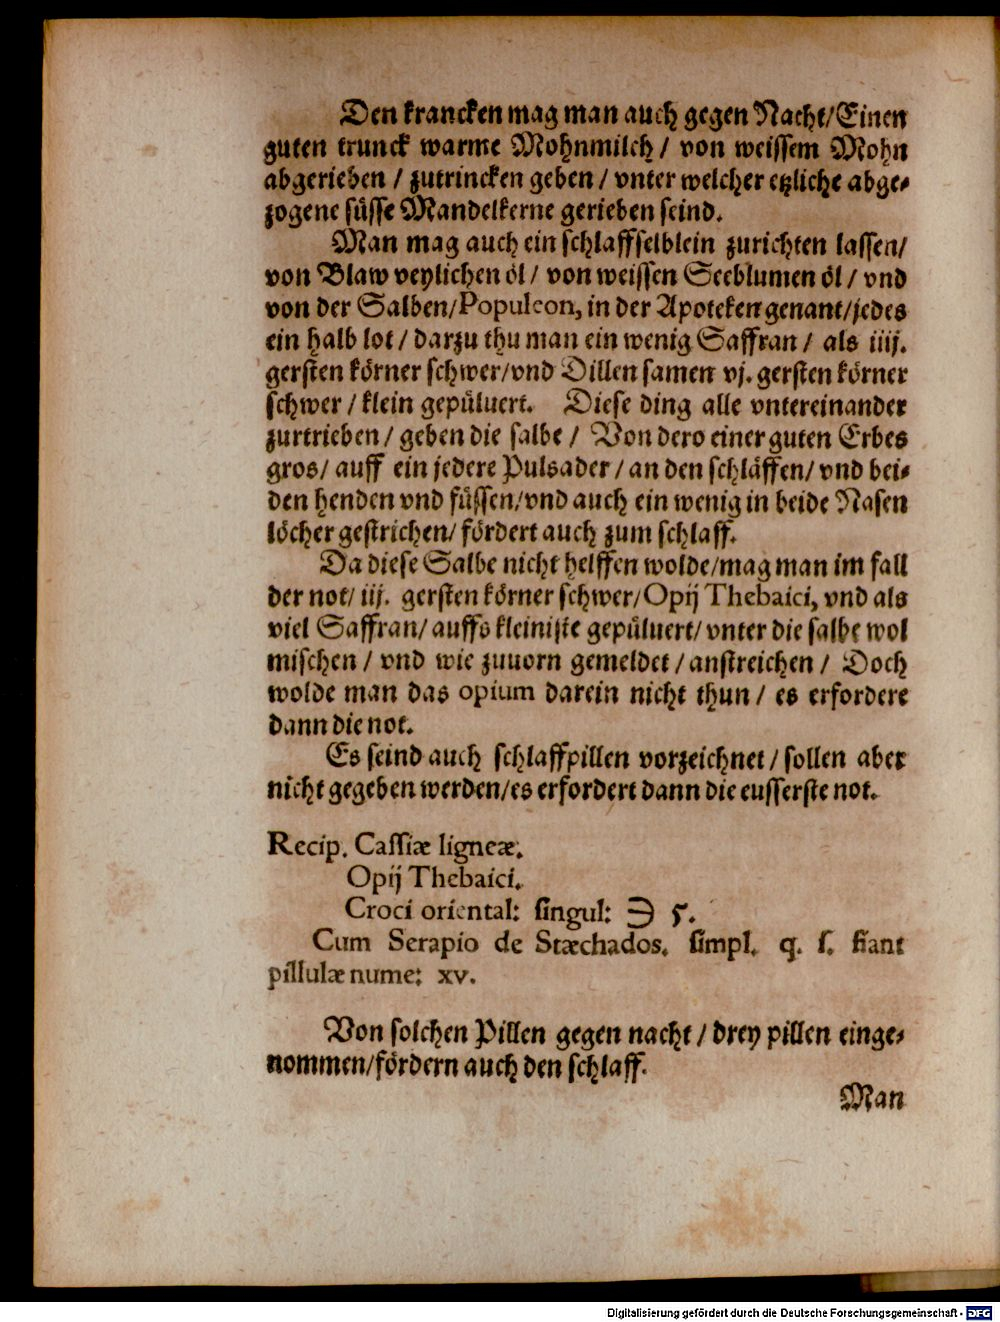 Den krancken mag man auch gegen Nacht/Einen
guten trunck warme Mohnmilch / von weissem Mohn
abgerieben / zutrincken geben / vnter welcher etzliche abge⸗
zogene süsse Mandelkerne gerieben seind.
Man mag auch ein schlaffselblein zurichten lassen/
von Blaw veylichen öl / von weissen Seeblumen öl / vnd
von der Salben/Populeon, in der Apoteken genant/jedes
ein halb lot / darzu thu man ein wenig Saffran / als iiij.
gersten körner schwer/vnd Dillen samen vj. gersten körner
schwer / klein gepüluert. Diese ding alle vntereinander
zurtrieben / geben die salbe / Von dero einer guten Erbes
gros/ auff ein jedere Pulsader / an den schläffen/ vnd bei⸗
den henden vnd füssen/vnd auch ein wenig in beide Nasen
löcher gestrichen/ fördert auch zum schlaff.
Da diese Salbe nicht helffen wolde/mag man im fall
der not/ iij. gersten körner schwer/Opij Thebaici, vnd als
viel Saffran/ auffs kleiniste gepüluert/ vnter die salbe wol
mischen / vnd wie zuuorn gemeldet / anstreichen / Doch
wolde man das opium darein nicht thun / es erfordere
dann die not.
Es seind auch schlaffpillen vorzeichnet / sollen aber
nicht gegeben werden/es erfordert dann die eusserste not.
Recip. Cassiæ ligneæ.
Opij Thebaici.
Croci oriental: singul: ℈ ɕ.
Cum Serapio de Stæchados. simpl. q. s. fiant
pillulæ nume: xv.
Von solchen Pillen gegen nacht / drey pillen einge⸗
nommen/fördern auch den schlaff.
Man
Digitalisierung gefördert durch die Deutsche Forschungsgemeinschaft - DFG